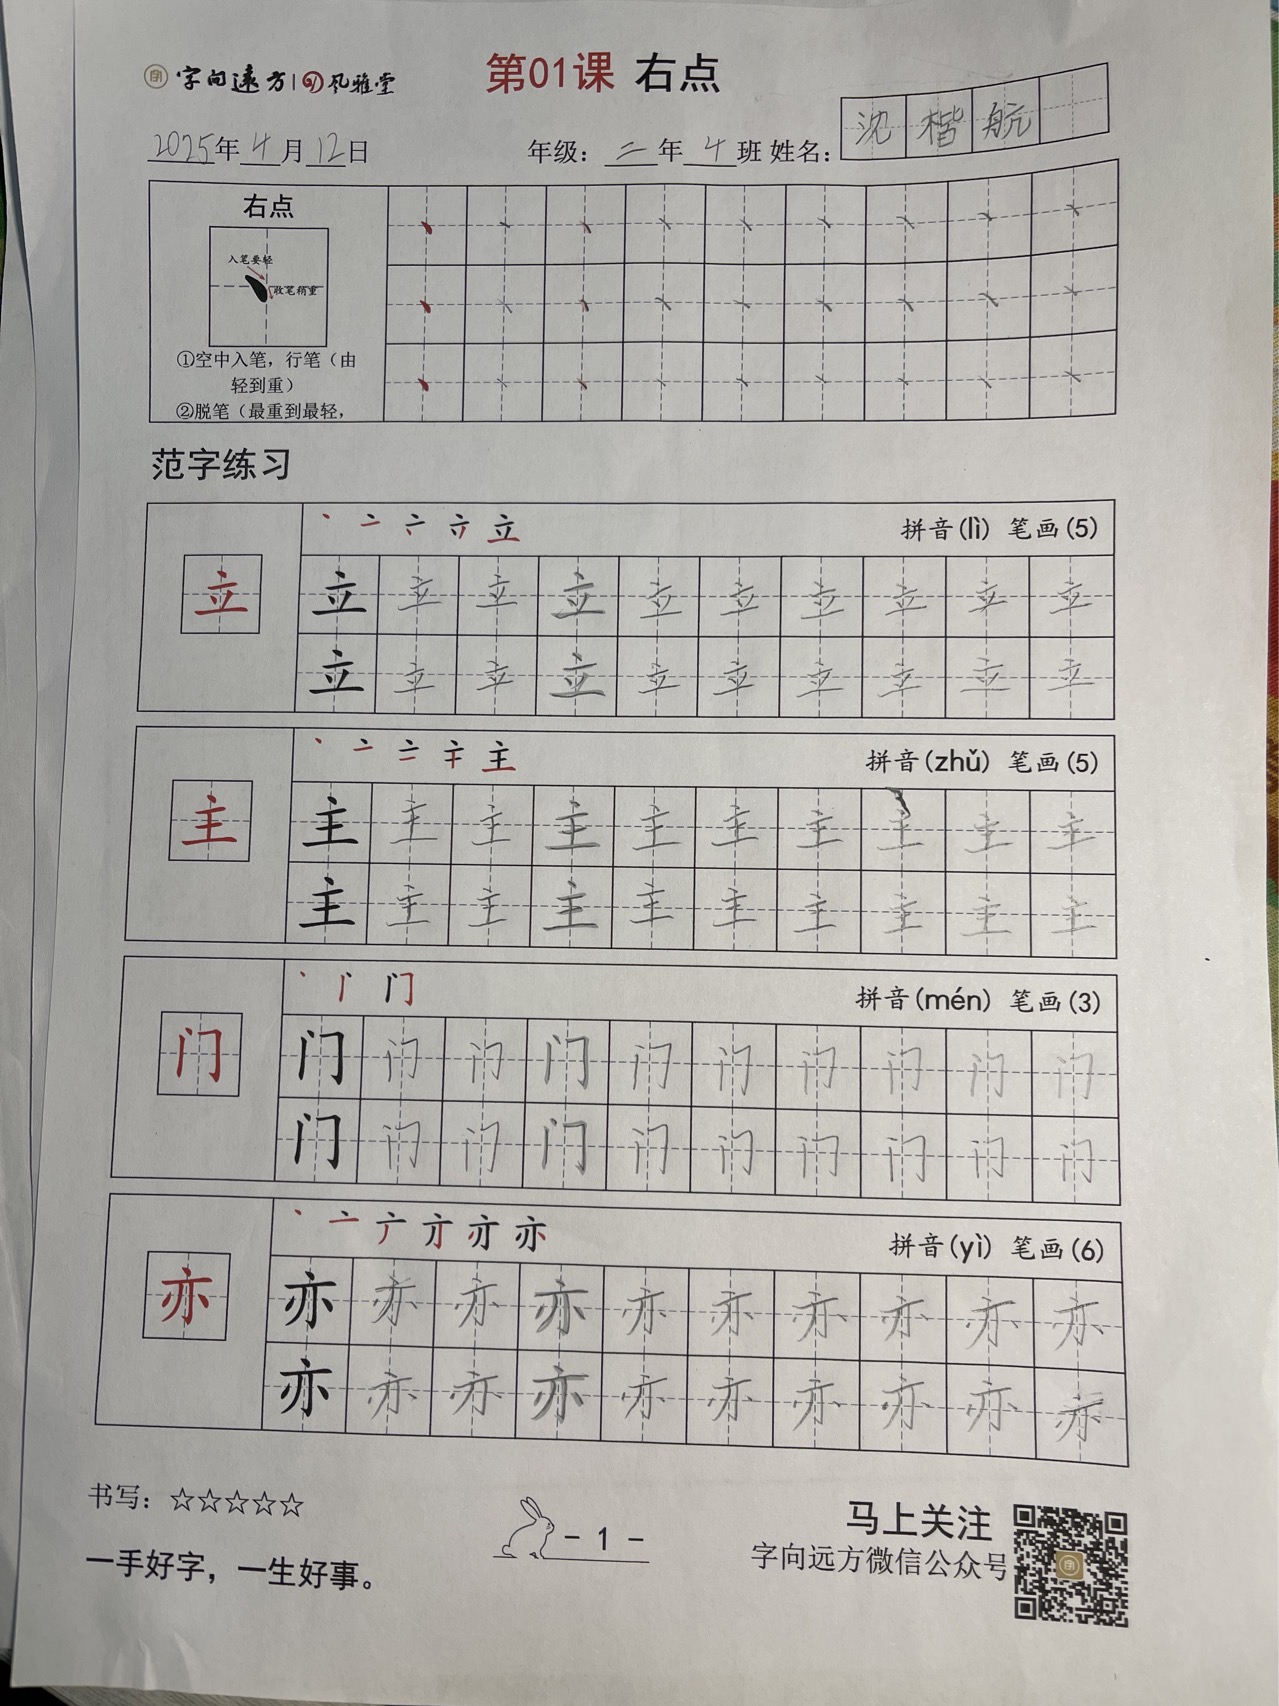 字向远方 | 风雅堂
第01课 右点
2025年4月12日 年级：二年4班 姓名：沈楷航
右点
入笔要轻
收笔稍重
①空中入笔，行笔（由
轻到重）
②脱笔（最重到最轻，
范字练习
立 拼音(lì) 笔画(5)
立 立 立 立 立 立 立 立 立 立 立
立 立 立 立 立 立 立 立 立 立
主 拼音(zhǔ) 笔画(5)
主 主 主 主 主 主 主 主 主 主 主
主 主 主 主 主 主 主 主 主 主
门 拼音(mén) 笔画(3)
门 门 门 门 门 门 门 门 门 门 门
门 门 门 门 门 门 门 门 门 门
亦 拼音(yì) 笔画(6)
亦 亦 亦 亦 亦 亦 亦 亦 亦 亦 亦
亦 亦 亦 亦 亦 亦 亦 亦 亦 亦
书写：☆☆☆☆☆
- 1 -
马上关注
一手好字，一生好事。
字向远方微信公众号